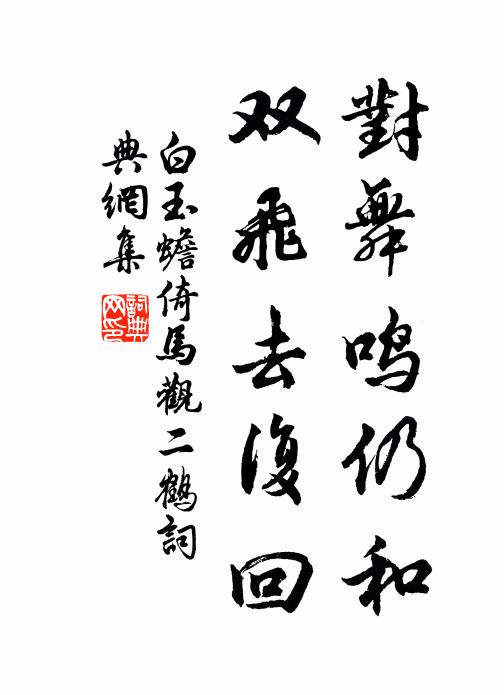 對舞鳴仍和
双飛去復回
白玉蟾倚馬觀二鶴詞
典網集
詞典网印